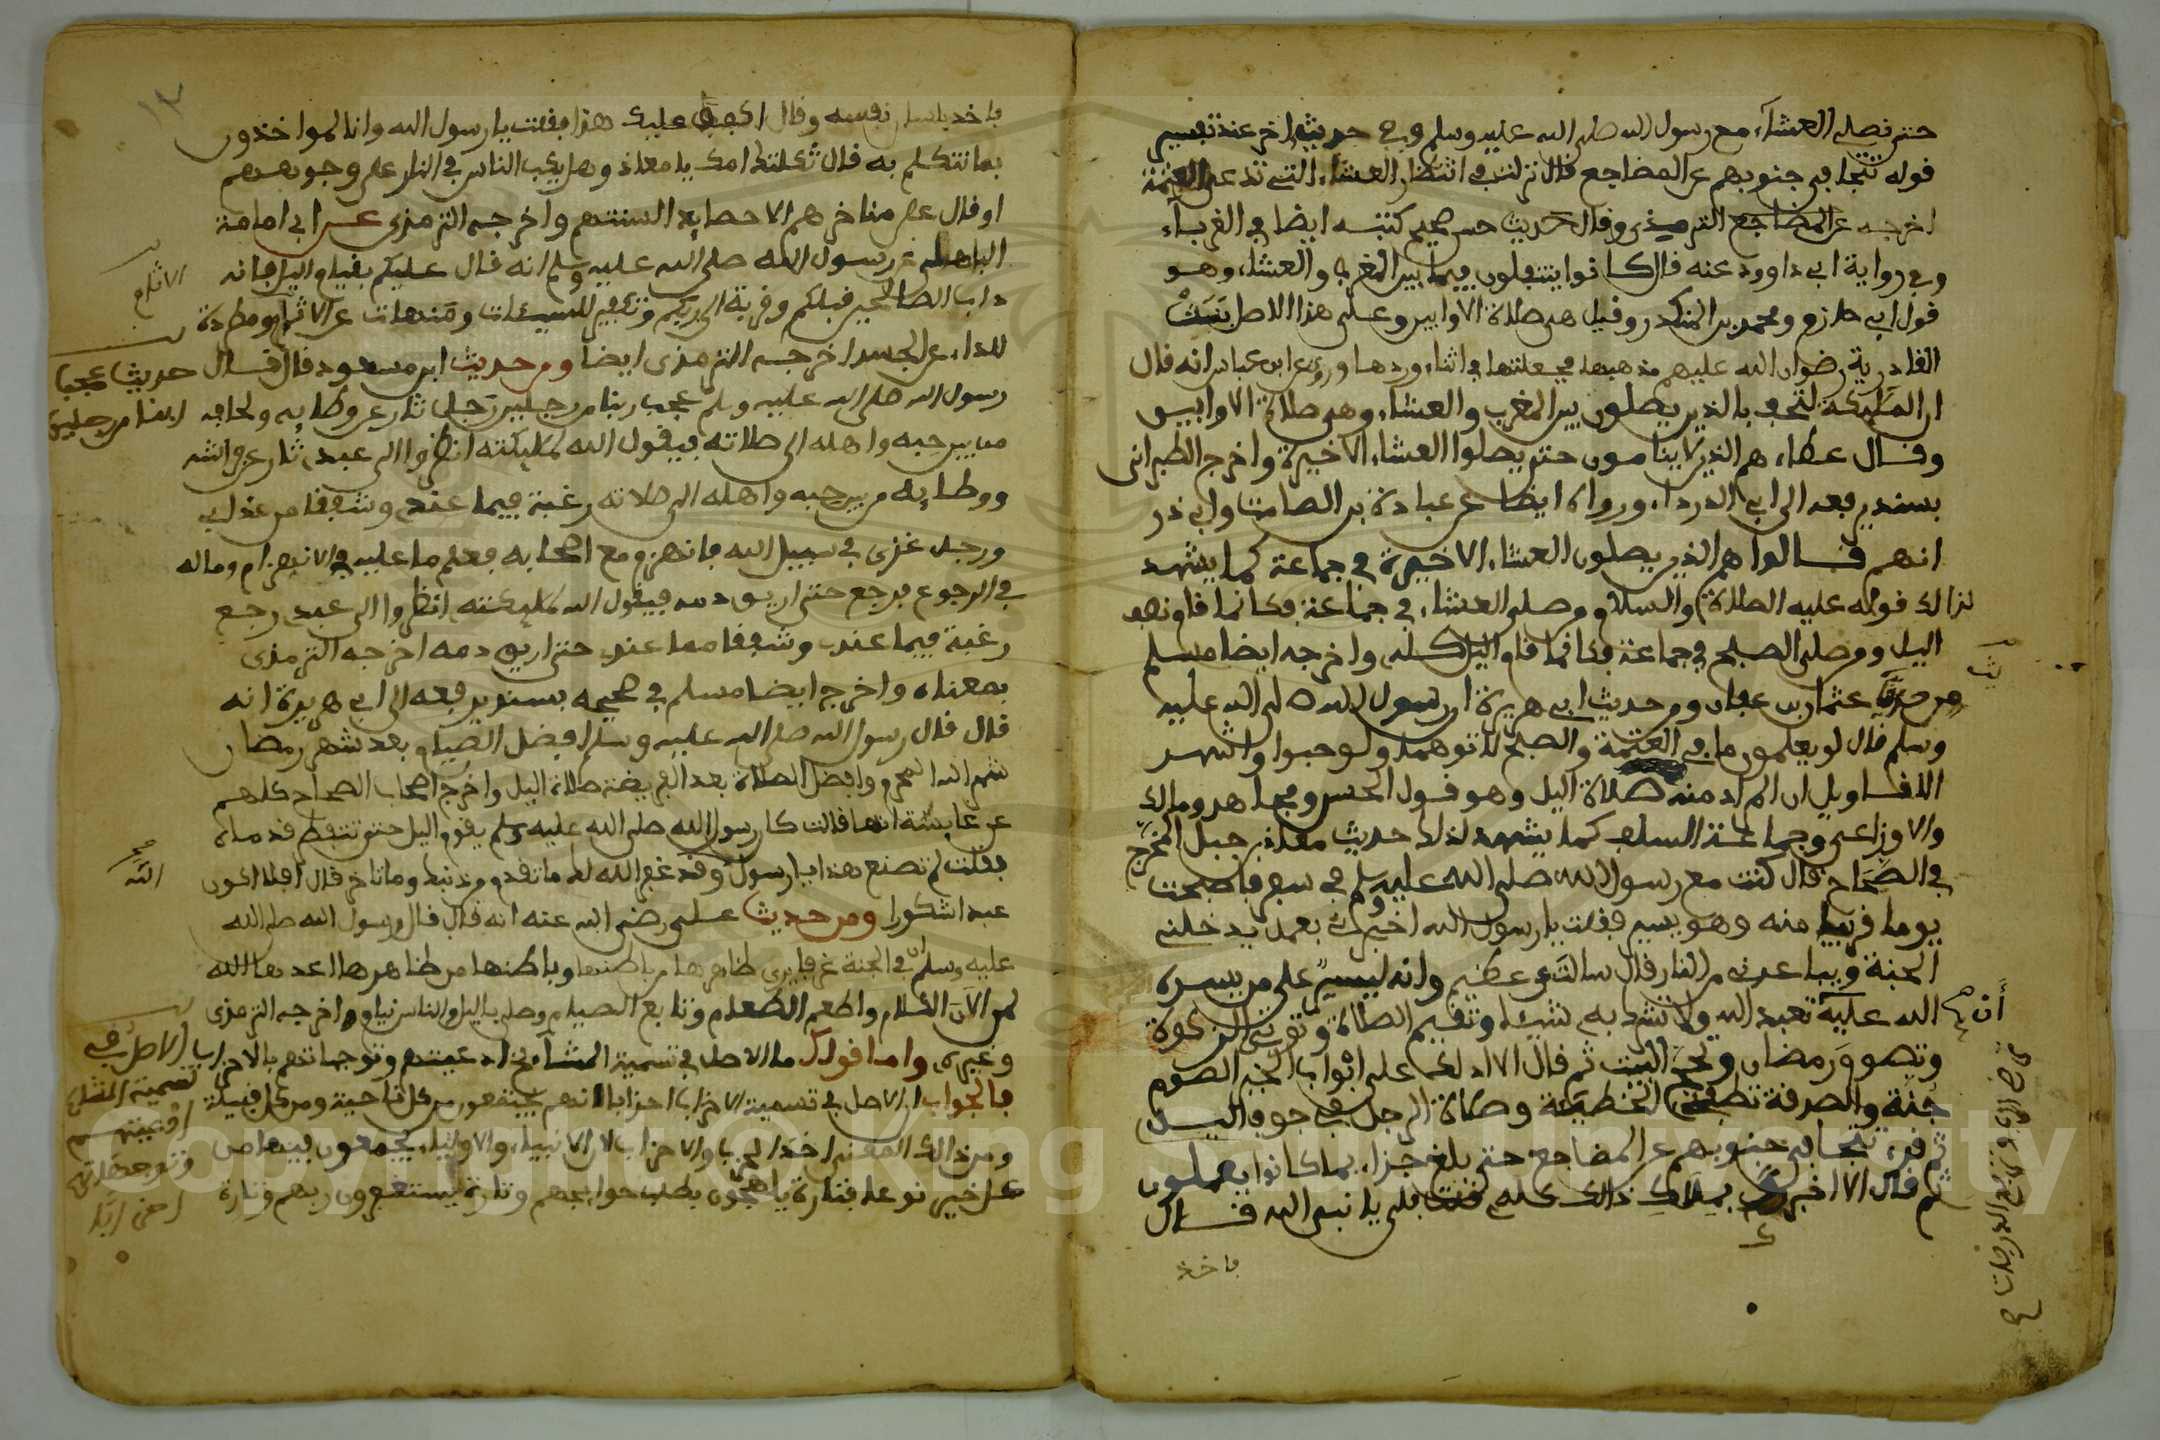 حتى نصلي العشاء مع رسول الله صلى الله عليه وسلم وفي حديث اخر عند تفسير
قوله تتجافى جنوبهم عن المضاجع قال نزلت في انتظار العشاء التي تدعى العتمة
اخرجه عن المضاجع الترمذي وقال حديث حسن صحيح كتبه ايضا في الغرباء
وفي رواية ابي داوود عنه قال كانوا يتنفلون فيما بين المغرب والعشاء وهو
قول ابي حازم ومحمد بن المنكدر وقيل هي صلاة الاوابين وعلى هذا الاصل بنت
القادرية رضوان الله عليهم مذهبها فجعلتها في اثناء وردها وروي عن ابن عباس انه قال
ان المليكة لتحف بالذين يصلون بين المغرب والعشاء وهي صلاة الاوابين
وقال عطاء هم الذين لا ينامون حتى يصلوا العشاء الاخيرة واخرج الطبراني
بسند يرفعه الى ابي الدرداء ورواه ايضا عن عبادة بن الصامت وابي ذر
انهم قالوا هم الذين يصلون العشاء الاخيرة في جماعة كما يشهد
لذالك قوله عليه الصلاة والسلام ومن صلى العشاء في جماعة فكانما قام نصف
اليل ومن صلى الصبح في جماعة فكانما قام اليل كله واخرجه ايضا مسلم
من حديث عثمان بن عفان ومن حديث ابي هريرة ان رسول الله صلى الله عليه
وسلم قال لو يعلمون ما في العتمة والصبح لاتوهما ولو حبوا واشهر
الاقاويل ان المراد منه صلاة اليل وهو قول الحسن ومجاهد ومالك
والاوزاعي وجماعة السلف كما يشهد لذلك حديث معاذ بن جبل المخرج
في الصحاح قال كنت مع رسول الله صلى الله عليه وسلم في سفر فاصبحت
يوما قريبا منه وهو يسير فقلت يا رسول الله اخبرني بعمل يدخلني
الجنة ويباعدني من النار قال سالت عن عظيم وانه ليسير على من يسره
الله عليه تعبد الله ولا تشرك به شيئا وتقيم الصلاة وتوتي الزكوة
وتصوم رمضان وتحج البيت ثم قال الا ادلك على ابواب الخير الصوم
جنة والصدقة تطفئ الخطيئة وصلاة الرجل في جوف اليل
ثم قرء تتجافى جنوبهم عن المضاجع حتى بلغ جزاء بما كانوا يعملون
ثم قال الا اخبرك بملاك ذالك كله قلت بلى يا نبي الله قال
فاخذ
أن
فاخذ بلسان نفسه وقال اكفف عليك هذا فقلت يا رسول الله وانا لمواخذون
بما نتكلم به قال ثكلتك امك يا معاذ وهل يكب الناس في النار على وجوههم
او قال على مناخرهم الا حصايد السنتهم واخرجه الترمذي عن ابي امامة
الباهلي عن رسول الله صلى الله عليه وسلم انه قال عليكم بقيام اليل فانه
داب الصالحين قبلكم وقربة الى ربكم وتكفير للسيئات ومنهات عن الاثم ومطردة
للداء عن الجسد اخرجه الترمذي ايضا ومن حديث ابن مسعود قال قال
رسول الله صلى الله عليه وسلم عجب ربنا من رجلين رجل ثار عن وطايه ولحافه
من بين حبه واهله الى صلاته فيقول الله لمليكته انظروا الى عبدي ثار عن فراشه
ووطايه من بين حبه واهله الى صلاته رغبة فيما عندي وشفقا من عذابي
ورجل غزى في سبيل الله فانهزم مع اصحابه فعلم ما عليه في الانهزام وماله
في الرجوع فرجع حتى اريق دمه فيقول الله لمليكته انظروا الى عبدي رجع
رغبة فيما عندي وشفقا مما عندي حتى اريق دمه اخرجه الترمذي
بمعناه واخرج ايضا مسلم في صحيحه بسند يرفعه الى ابي هريرة انه
قال قال رسول الله صلى الله عليه وسلم افضل الصيام بعد شهر رمضان
شهر الله المحرم وافضل الصلاة بعد الفريضة صلاة اليل واخرج اصحاب الصحاح كلهم
عن عايشة انها قالت كان رسول الله صلى الله عليه وسلم يقوم اليل حتى تتفطر قدماه
فقلت لم تصنع هذا يا رسول وقد غفر الله لك ما تقدم من ذنبك وما تاخر قال افلا اكون
عبدا شكورا ومن حديث علي رضي الله عنه انه قال قال رسول الله صلى الله
عليه وسلم ان في الجنة غرفا يرى ظاهرها من باطنها وباطنها من ظاهرها اعدها الله
لمن الان الكلام واطعم الطعام وتابع الصيام وصلى باليل والناس نيام اخرجه الترمذي
وغيره واما قولك ما الاصل في تسمية المشاء بخ ادعيتهم وتوجهاتهم بالاحزاب
فالجواب ان الاصل في تسمية الاحزاب احزابا انهم يجتمعون من كل ناحية ومن كل قبيلة
ومن ذالك المعنى اخذ الحزب والاحزاب لان الانبياء والاولياء يجمعون بينهما من
كل خير نوعا فتارة ياهجون بطلب حوايجهم وتارة يستغفرون ربهم وتارة
الاثام
حديث عجبا
ربنا من رجلين
الله
الاصل في
تسمية المشايخ
ادعيتهم
وتوجهاتهم
احزابا